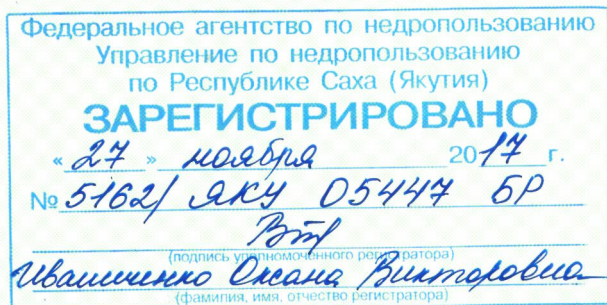 Федеральное агентство по недропользованию
Управление по недропользованию
по Республике Саха (Якутия)
ЗАРЕГИСТРИРОВАНО
« 27 » ноября 2017 г.
№ 5162/ ЯКУ 05447 БР
(подпись уполномоченного регистратора)
Иващенко Оксана Викторовна
(фамилия, имя, отчество регистратора)